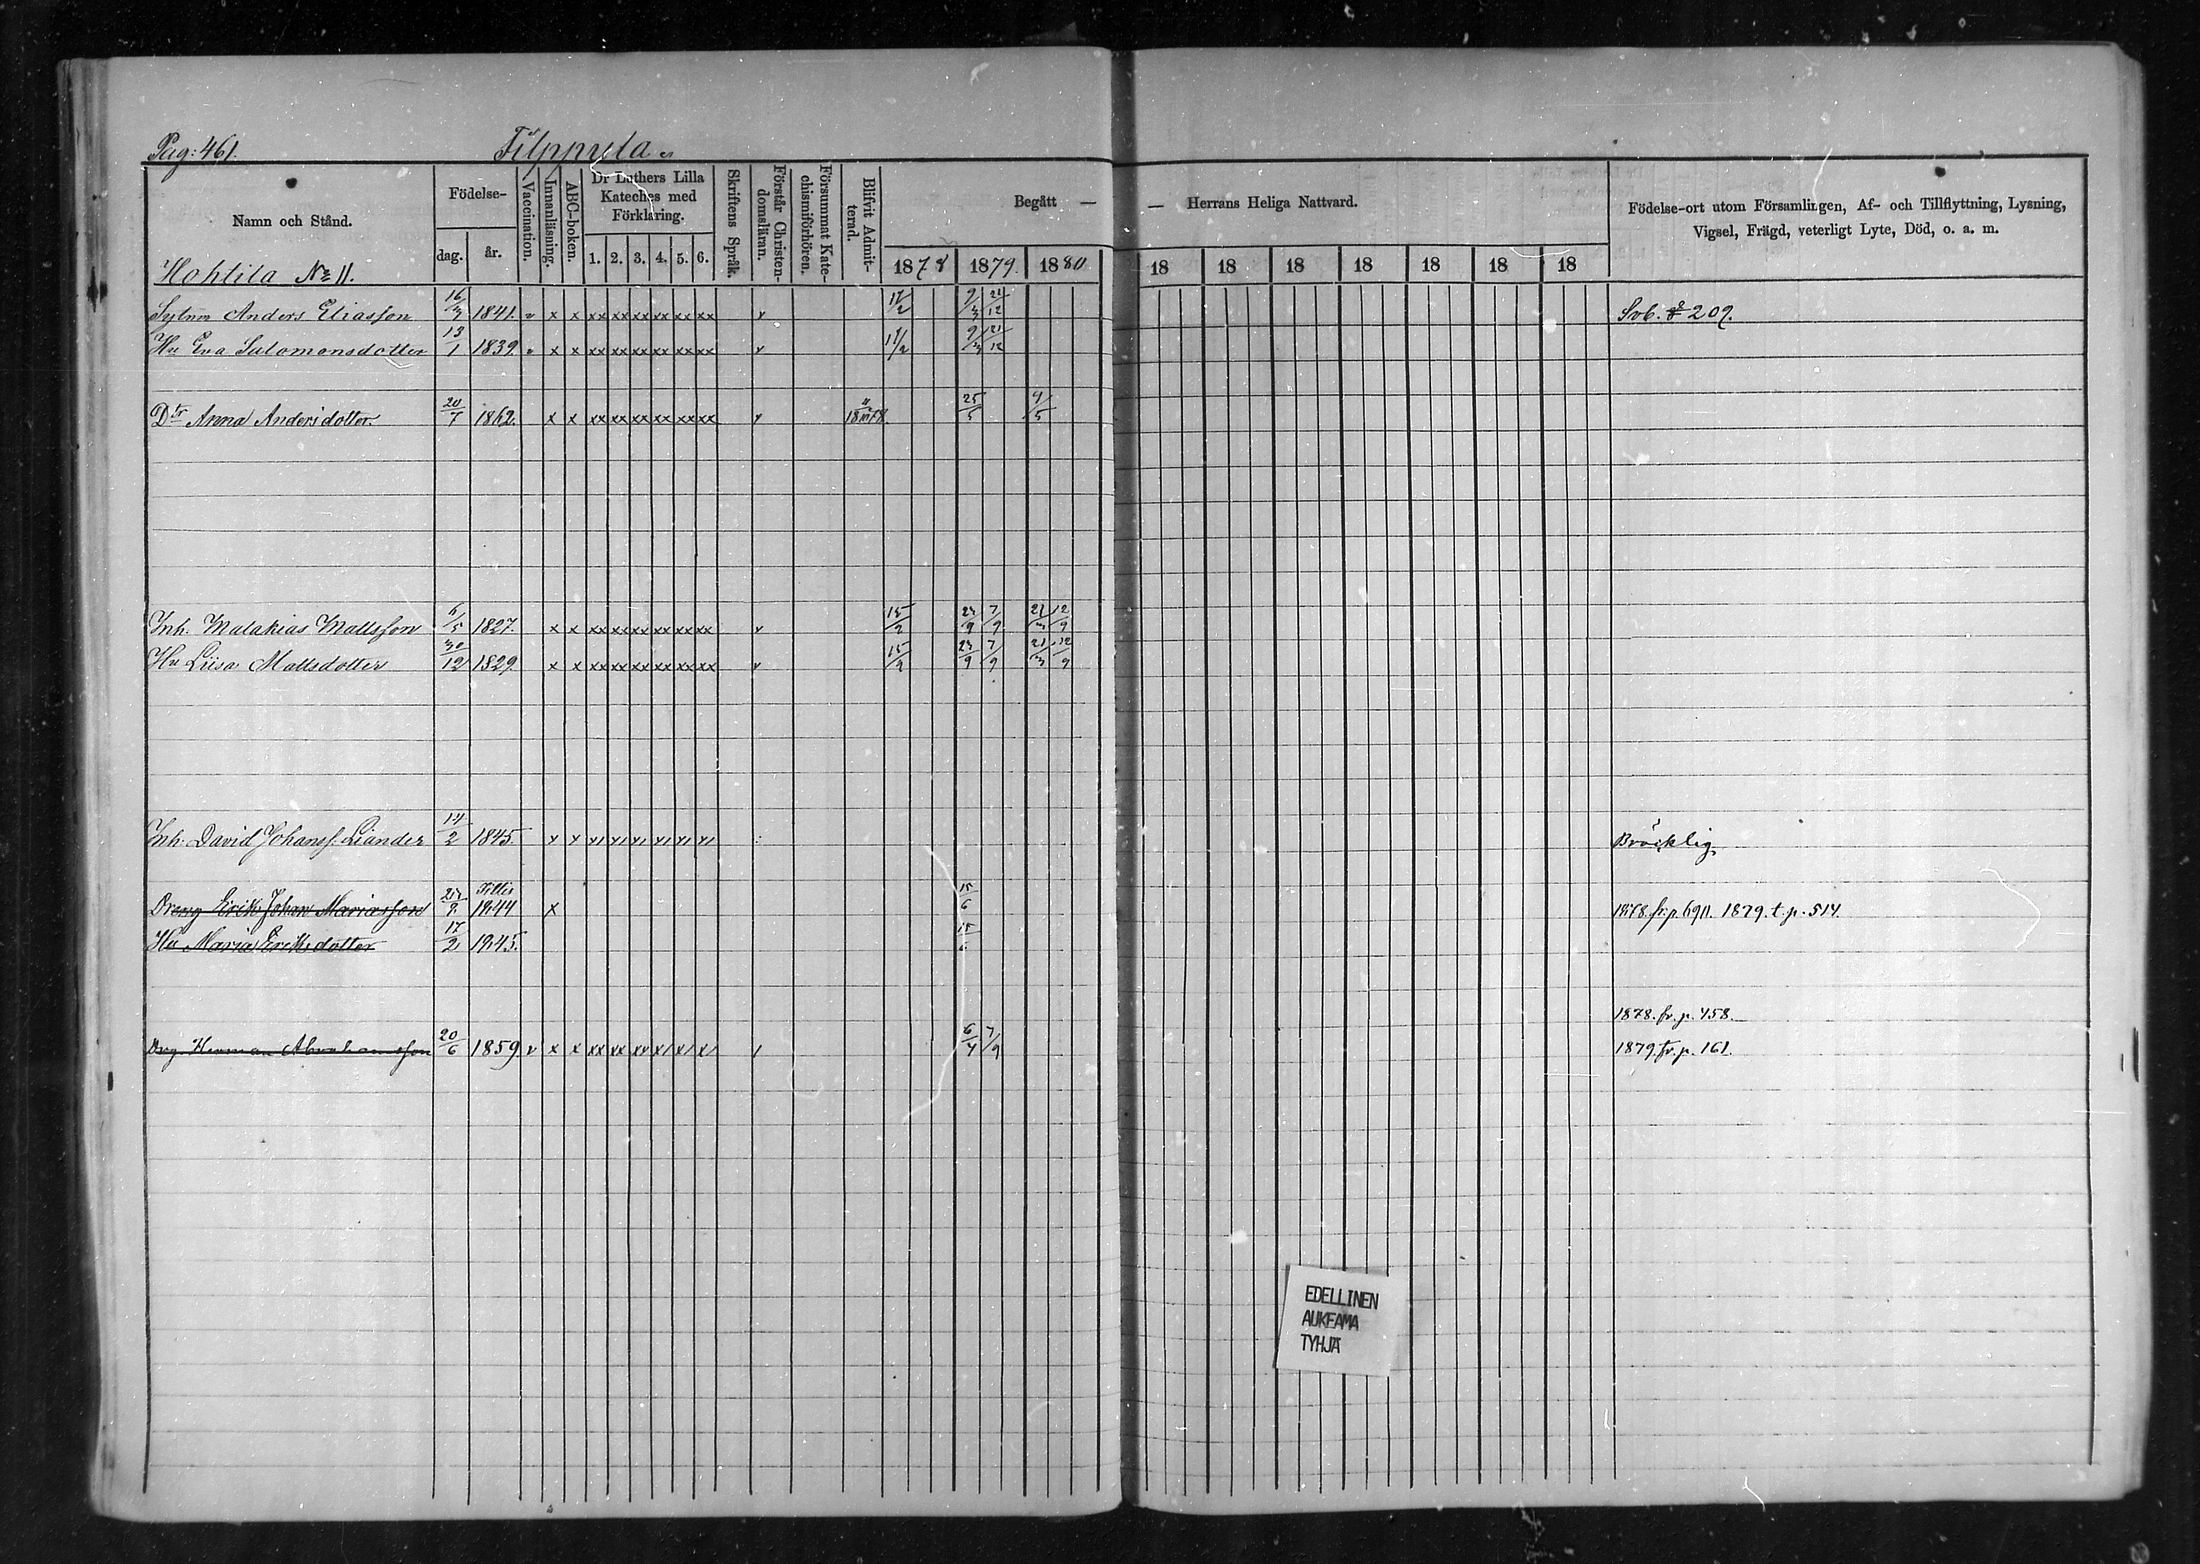 Pag: 461. Filppula
Namn och Stånd. Födelse- dag. år. Vaccination. Innanläsning. ABC-boken. Dr Luthers Lilla Kateches med Förklaring. 1. 2. 3. 4. 5. 6. Skriftens Språk. Förstår Christendomsläran. Försummat Katechismiförhören. Blifvit Admitterad. Begått — — Herrans Heliga Nattvard. Födelse-ort utom Församlingen, Af- och Tillflyttning, Lysning, Vigsel, Frägd, veterligt Lyte, Död, o. a. m.
Hohtila No 11. 1878 1879. 1880 18 18 18 18 18 18 18
Anders Eliasson 16/3 1841. v x x xx xx xx xx xx xx v 17/2 9/3 21/12 Svb. 209.
Hu Eva Salomonsdotter 13/1 1839. v x x xx xx xx xx xx xx v 11/2 9/3 21/12
Dtr Anna Andersdotter. 20/7 1862. x x xx xx xx xx xx xx v 25/5 4/5
Inh. Malakias Mattsson 6/5 1827. x x xx xx xx xx xx xx v 15/2 23/9 7/9 21/3 12/9
Hu Liisa Mattsdotter 30/12 1829. x x xx xx xx xx xx xx v 15/2 23/9 7/9 21/3 12/9
Inh: David Johanss. Liander 14/2 1845. Bräcklig.
Dreng Erik Johan Mariasson 1844 x 15/6 1878. fr. p. 1879. t. p. 514.
Hu Maria Eriksdotter 17/2 1845. 15/6
1878. fr. p. 458.
Drg. Herman Abrahamsson 20/6 1859 v x x xx xx xx x/ x/ x/ 6/4 7/9 1879. fr. p. 161.
EDELLINEN
AUKEAMA
TYHJÄ